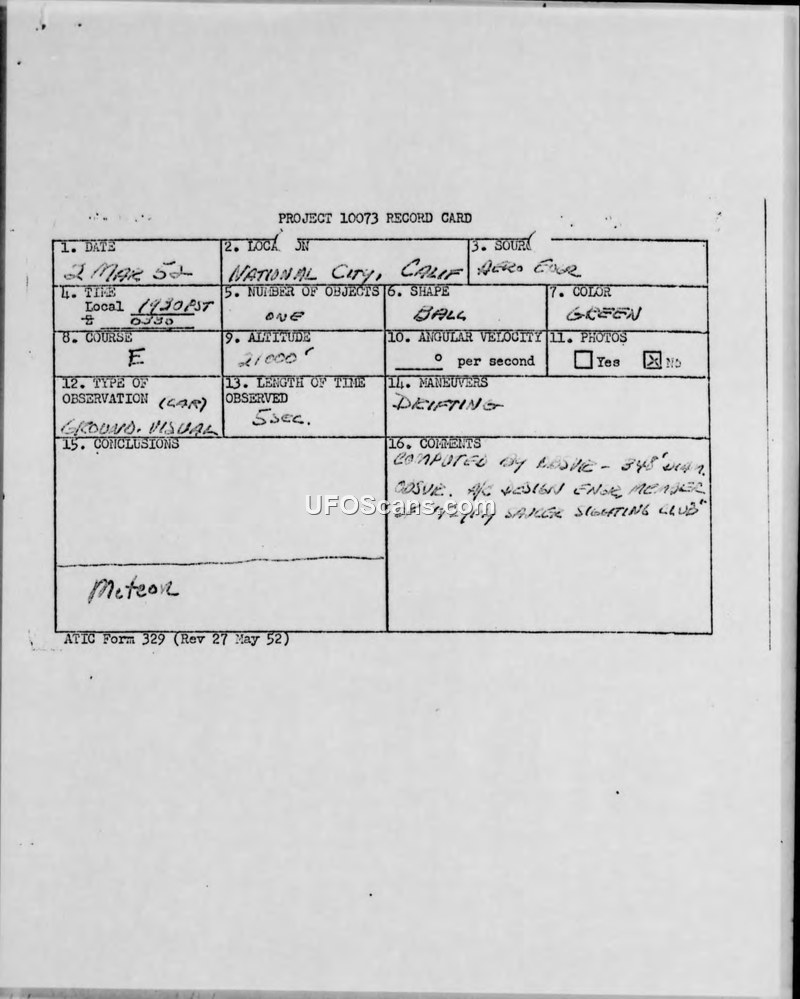 PROJECT 10073 RECORD CARD
1. DATE
2 MAR 52
2. LOCA ON
NATIONAL CITY, CALIF
3. SOUR
AERO ENGR
4. TIME
Local 1930 PST
Z 0330
5. NUMBER OF OBJECTS
ONE
6. SHAPE
BALL
7. COLOR
GREEN
8. COURSE
E
9. ALTITUDE
21000'
10. ANGULAR VELOCITY
° per second
11. PHOTOS
Yes No
12. TYPE OF
OBSERVATION (CAR)
GROUND-VISUAL
13. LENGTH OF TIME
OBSERVED
5 SEC.
14. MANEUVERS
DRIFTING
15. CONCLUSIONS
Meteor
16. COMMENTS
COMPUTED BY ABOVE - DIAM.
A/C DESIGN ENGR, MEMBER
SAUCER SIGHTING CLUB"
UFOScans.com
ATIC Form 329 (Rev 27 May 52)